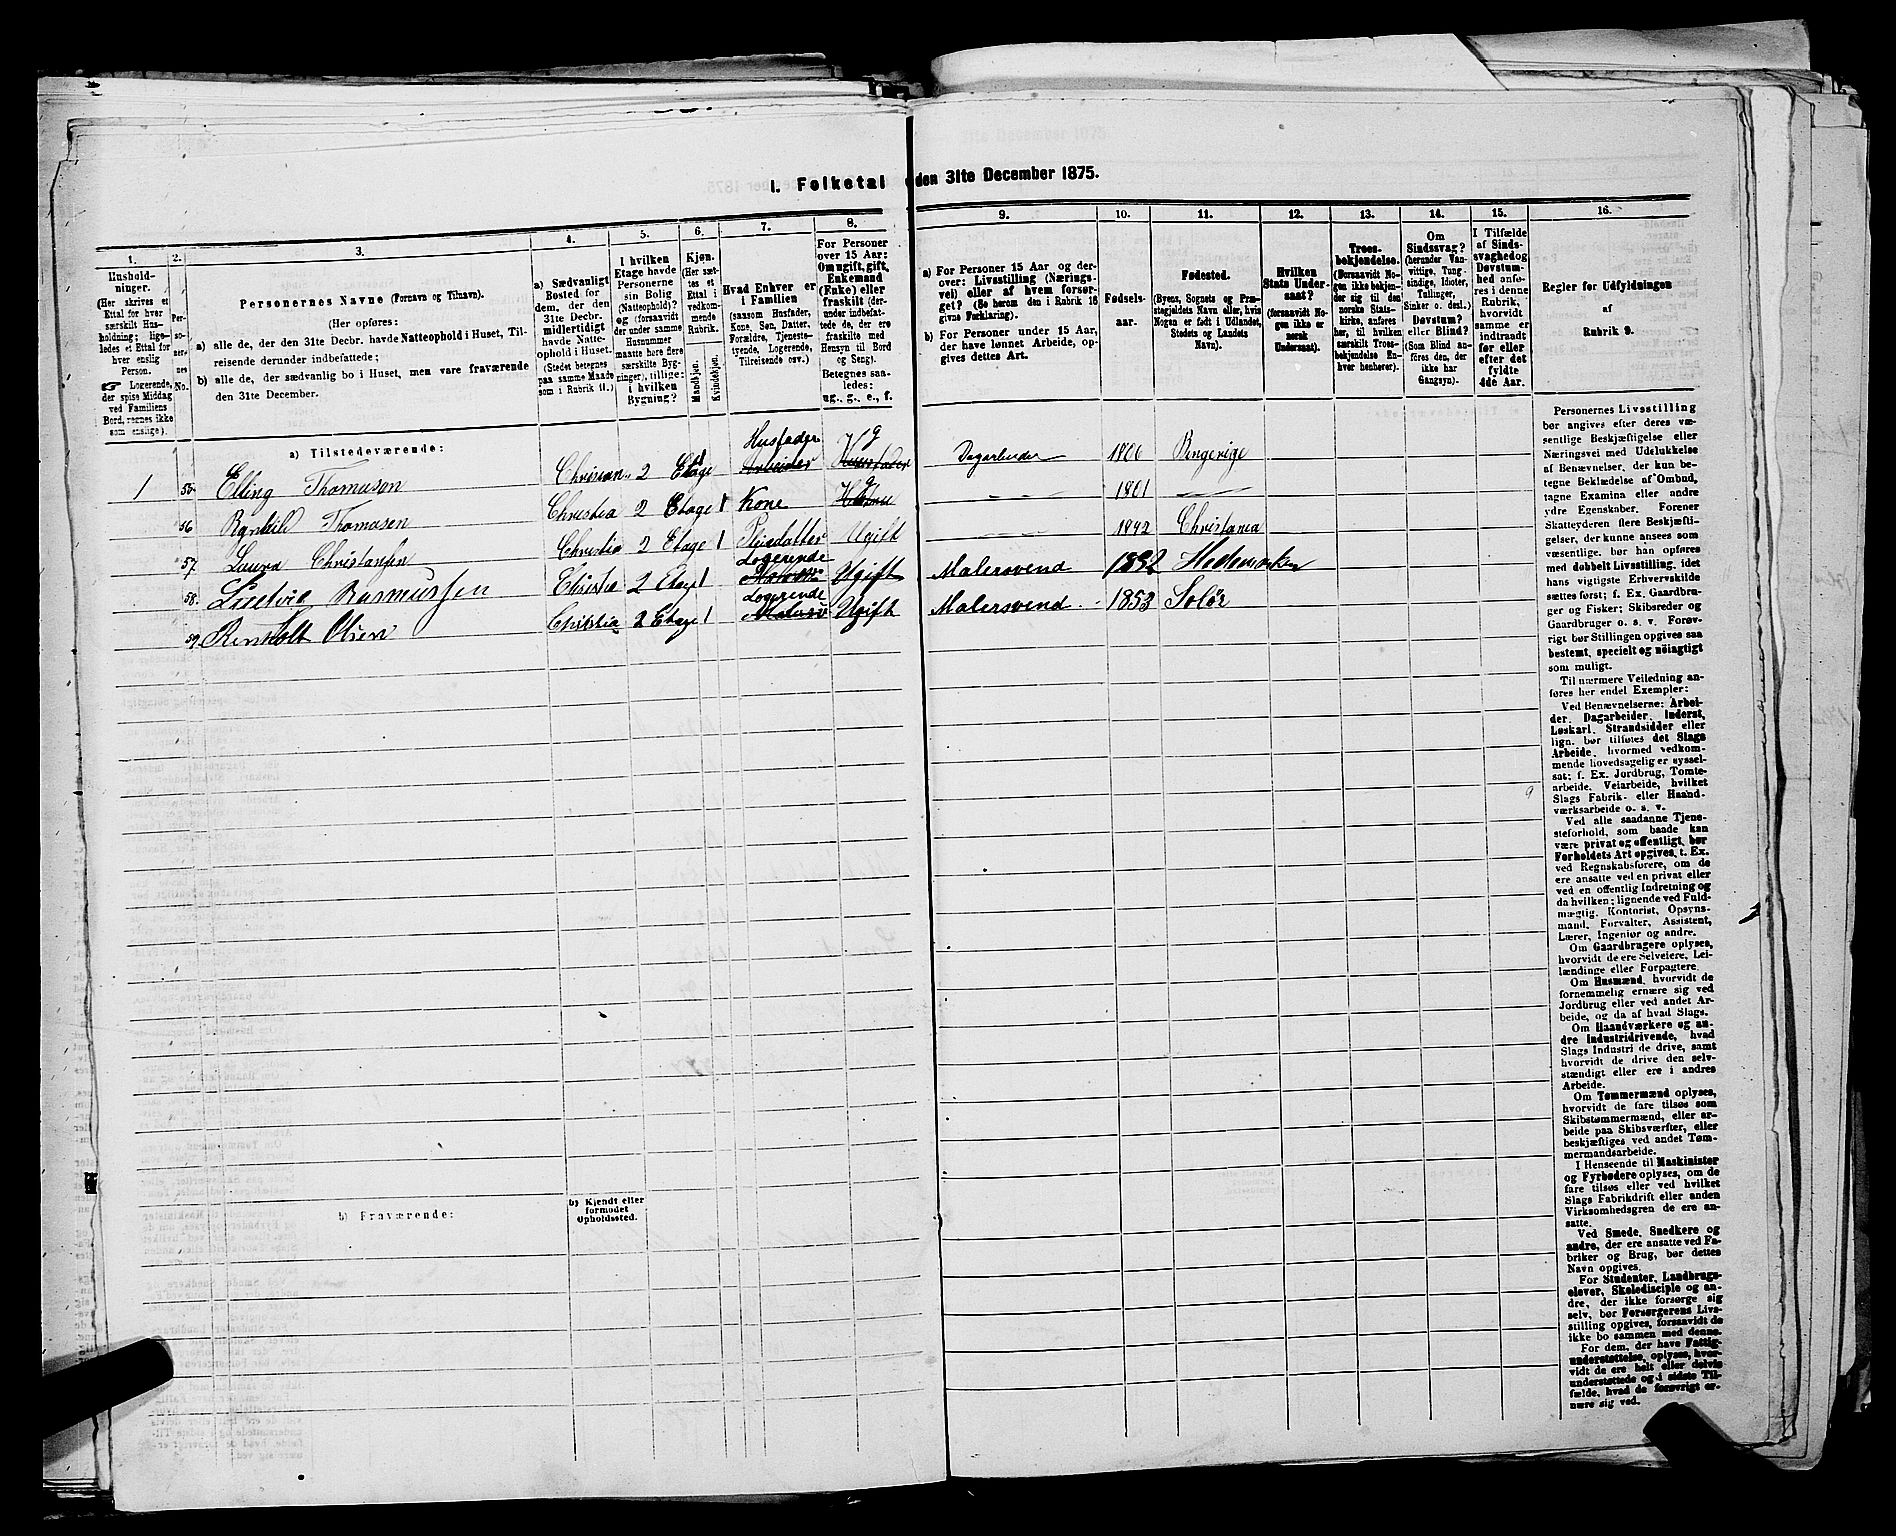 1. Folketal den 31te December 1875.
1.
Husholdninger.
(Her skrives et
Ettal for hver
særskilt Husholdning; ligeledes et Ettal for
hver enslig
Person.
Logerende,
der spise Middag
ved Familiens
Bord, regnes ikke
som enslige).
2.
Personernes No.
3.
Personernes Navne (Fornavn og Tilnavn).
(Her opføres:
a) alle de, der den 31te Decbr. havde Natteophold i Huset, Tilreisende derunder indbefattede;
b) alle de, der sædvanlig bo i Huset, men vare fraværende
den 31te December.
4.
a) Sædvanligt
Bosted for
dem, der den
31te Decbr.
midlertidigt
havde Natteophold i Huset.
(Stedet betegnes
paa samme Maade
som i Rubrik 11.)
5.
I hvilken
Etage havde
Personerne
sin Bolig
(Natteophold)?
og (forsaavidt
der under samme
Husnummer
maatte høre flere
særskilte Bygninger), tillige:
i hvilken
Bygning?
6.
Kjøn.
(Her sættes et
Ettal i
vedkommende
Rubrik.
Mandkjøn.
Kvindekjøn.
7.
Hvad Enhver er
i Familien
(saasom Husfader,
Kone, Søn, Datter,
Forældre, Tjenestetyende, Logerende,
Tilreisende osv.).
8.
For Personer
over 15 Aar:
Om ugift, gift,
Enkemand
(Enke) eller
fraskilt (derunder indbefattede de, der ere
fraskilte med
Hensyn til Bord
og Seng).
Betegnes saaledes:
ug., g., e., f.
9.
a) For Personer 15 Aar og derover: Livsstilling (Næringsvei) eller af hvem forsørget? (Se herom den i Rubrik 16
givne Forklaring).
b) For Personer under 15 Aar,
der have lønnet Arbeide, opgives dettes Art.
10.
Fødselsaar.
11.
Fødested.
(Byens, Sognets og Præstegjeldets Navn eller, hvis
Nogen er født i Udlandet,
Stedets og Landets
Navn).
12.
Hvilken
Stats Undersaat?
(forsaavidt Nogen ikke er
norsk
Undersaat).
13.
Troesbekjendelse.
(Forsaavidt Nogen ikke bekjender sig til den
norske Statskirke, anføres
her, til hvilken
særskilt Trosbekjendelse Enhver henhører).
14.
Om
Sindssvag?
(herunder Vanvittige, Idioter,
Tullinger,
Sinker o. desl.)
Døvstum?
eller Blind?
(Som Blind anføres den, der
ikke har
Gangsyn).
15.
I Tilfælde
af Sindssvaghed og
Døvstumhed anføres i denne
Rubrik,
hvorvidt
samme er
indtraadt
før eller
efter det
fyldte
4de Aar.
16.
Regler for Udfyldningen
af
Rubrik 9.
a) Tilstedeværende:
1 55 Elling Thomasen Christian.. 2 Etage 1 Husfader Arbeider g Husfader Dagarbeider 1806 Ringerige
56 Rgnhild Thomasen Christia 2 Etage 1 Kone g 1801
57 Laura Christansen Christia 2 Etage 1 Pleiedatter Ugift 1842 Christania
58. Ludvig Rasmussen Christia 2 Etage 1 Logerende Ugift Malersvend 1852 Hedemarken
59 Renholt Olsen Christia 2 Etage 1 Logerende Ugift Malersvend 1853 Solør
b) Fraværende:
b) Kjendt eller
formodet
Opholdssted.
Personernes Livsstilling
bør angives efter deres væsentlige Beskjæftigelse eller
Næringsvei med Udelukkelse
af Benævnelser, der kun betegne Beklædelse af Ombud,
tagne Examina eller andre
ydre Egenskaber. Forener
Skatteyderen flere Beskjæftigelser, der kunne ansees som
væsentlige, bør han opføres
med dobbelt Livsstilling, idet
hans vigtigste Erhvervskilde
sættes først; f. Ex. Gaardbruger og Fisker; Skibsreder og
Gaardbruger o. s. v. Forøvrigt bør Stillingen opgives saa
bestemt, specielt og nøiagtigt
som muligt.
Til nærmere Veiledning anføres her endel Exempler:
Ved Benævnelserne: Arbeider, Dagarbeider, Inderst,
Løskarl, Strandsidder eller
lign. bør tilføies det Slags
Arbeide, hvormed vedkommende hovedsagelig er sysselsat; f. Ex. Jordbrug, Tomtearbeide, Veiarbeide, hvilket
Slags Fabrik- eller Haandværksarbeide o. s. v.
Ved alle saadanne Tjenesteforhold, som baade kan
være privat og offentligt, bør
Forholdets Art opgives, t. Ex.
ved Regnskabsførere, om de
ere ansatte ved en privat eller
ved en offentlig Indretning og
da hvilken; lignende ved Fuldmægtig, Kontorist, Opsynsmand, Forvalter, Assistent,
Lærer, Ingeniør og andre.
Om Gaardbrugere oplyses,
hvorvidt de ere Selveiere, Leilændinge eller Forpagtere.
Om Husmænd, hvorvidt de
fornemmelig ernære sig ved
Jordbrug eller ved andet Arbeide, og da af hvad Slags.
Om Haandværkere og andre Industridrivende, hvad
Slags Industri de drive, samt
hvorvidt de drive den selvstændigt eller ere i andres
Arbeide.
Om Tømmermænd oplyses,
hvorvidt de fare tilsøs som
Skibstømmermænd, eller arbeide paa Skibsværfter, eller
beskjæftiges ved andet Tømmermandsarbeide.
I Henseende til Maskinister
og Fyrbødere oplyses, om de
fare tilsøs eller ved hvilket
Slags Fabrikdrift eller anden
Virksomhedsgren de ere ansatte.
Ved Smede, Snedkere og
andre, der ere ansatte ved Fabriker og Brug, bør dettes
Navn opgives.
For Studenter, Landbrugselever, Skoledisciple og andre, der ikke forsørge sig
selv, bør Forsørgerens Livsstilling opgives, forsaavidt de
ikke bo sammen med denne.
For dem, der have Fattigunderstøttelse, oplyses, hvorvidt de ere helt eller delvis
understøttede og i sidste Tilfælde, hvad de forøvrigt ernære sig ved.